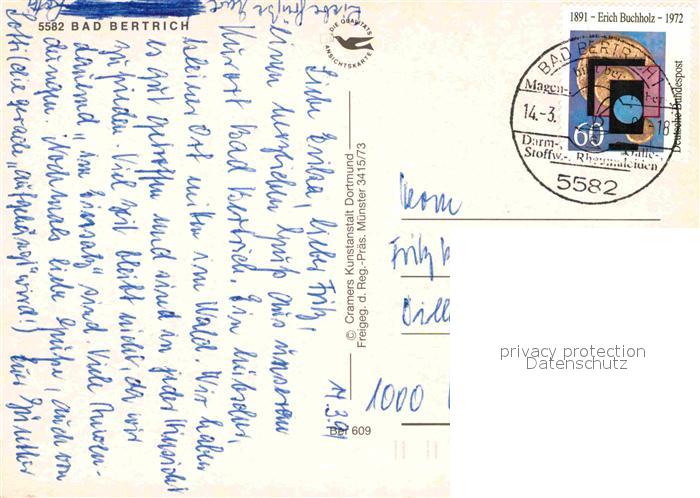 5582 BAD BERTRICH
DIE QUALITÄTS
ANSICHTSKARTE
1891 – Erich Buchholz – 1972
Deutsche Bundespost
60
BAD BERTRICH
Magen-
14.-3.
Darm-, Galle-,
Stoffw.- Rheumaleiden
5582
14.3.91
Liebe Erika, lieber Fritz!
einen herzlichen Gruß aus unserem
Kurort Bad Bertrich. Ein hübscher,
kleiner Ort mitten im Wald. Wir haben
es gut getroffen und sind in jeder Hinsicht
zufrieden. Viel Zeit bleibt nicht, da wir
dauernd „im Einsatz" sind. Viele
dungen. Nochmals liebe Grüße, auch von
(die gerade „ wird!) Euer Günther
Liebe Grüße
© Cramers Kunstanstalt Dortmund
Freigeg. d. Reg.-Präs. Münster 3415/73
Ber 609
Fritz
1000
privacy protection
Datenschutz